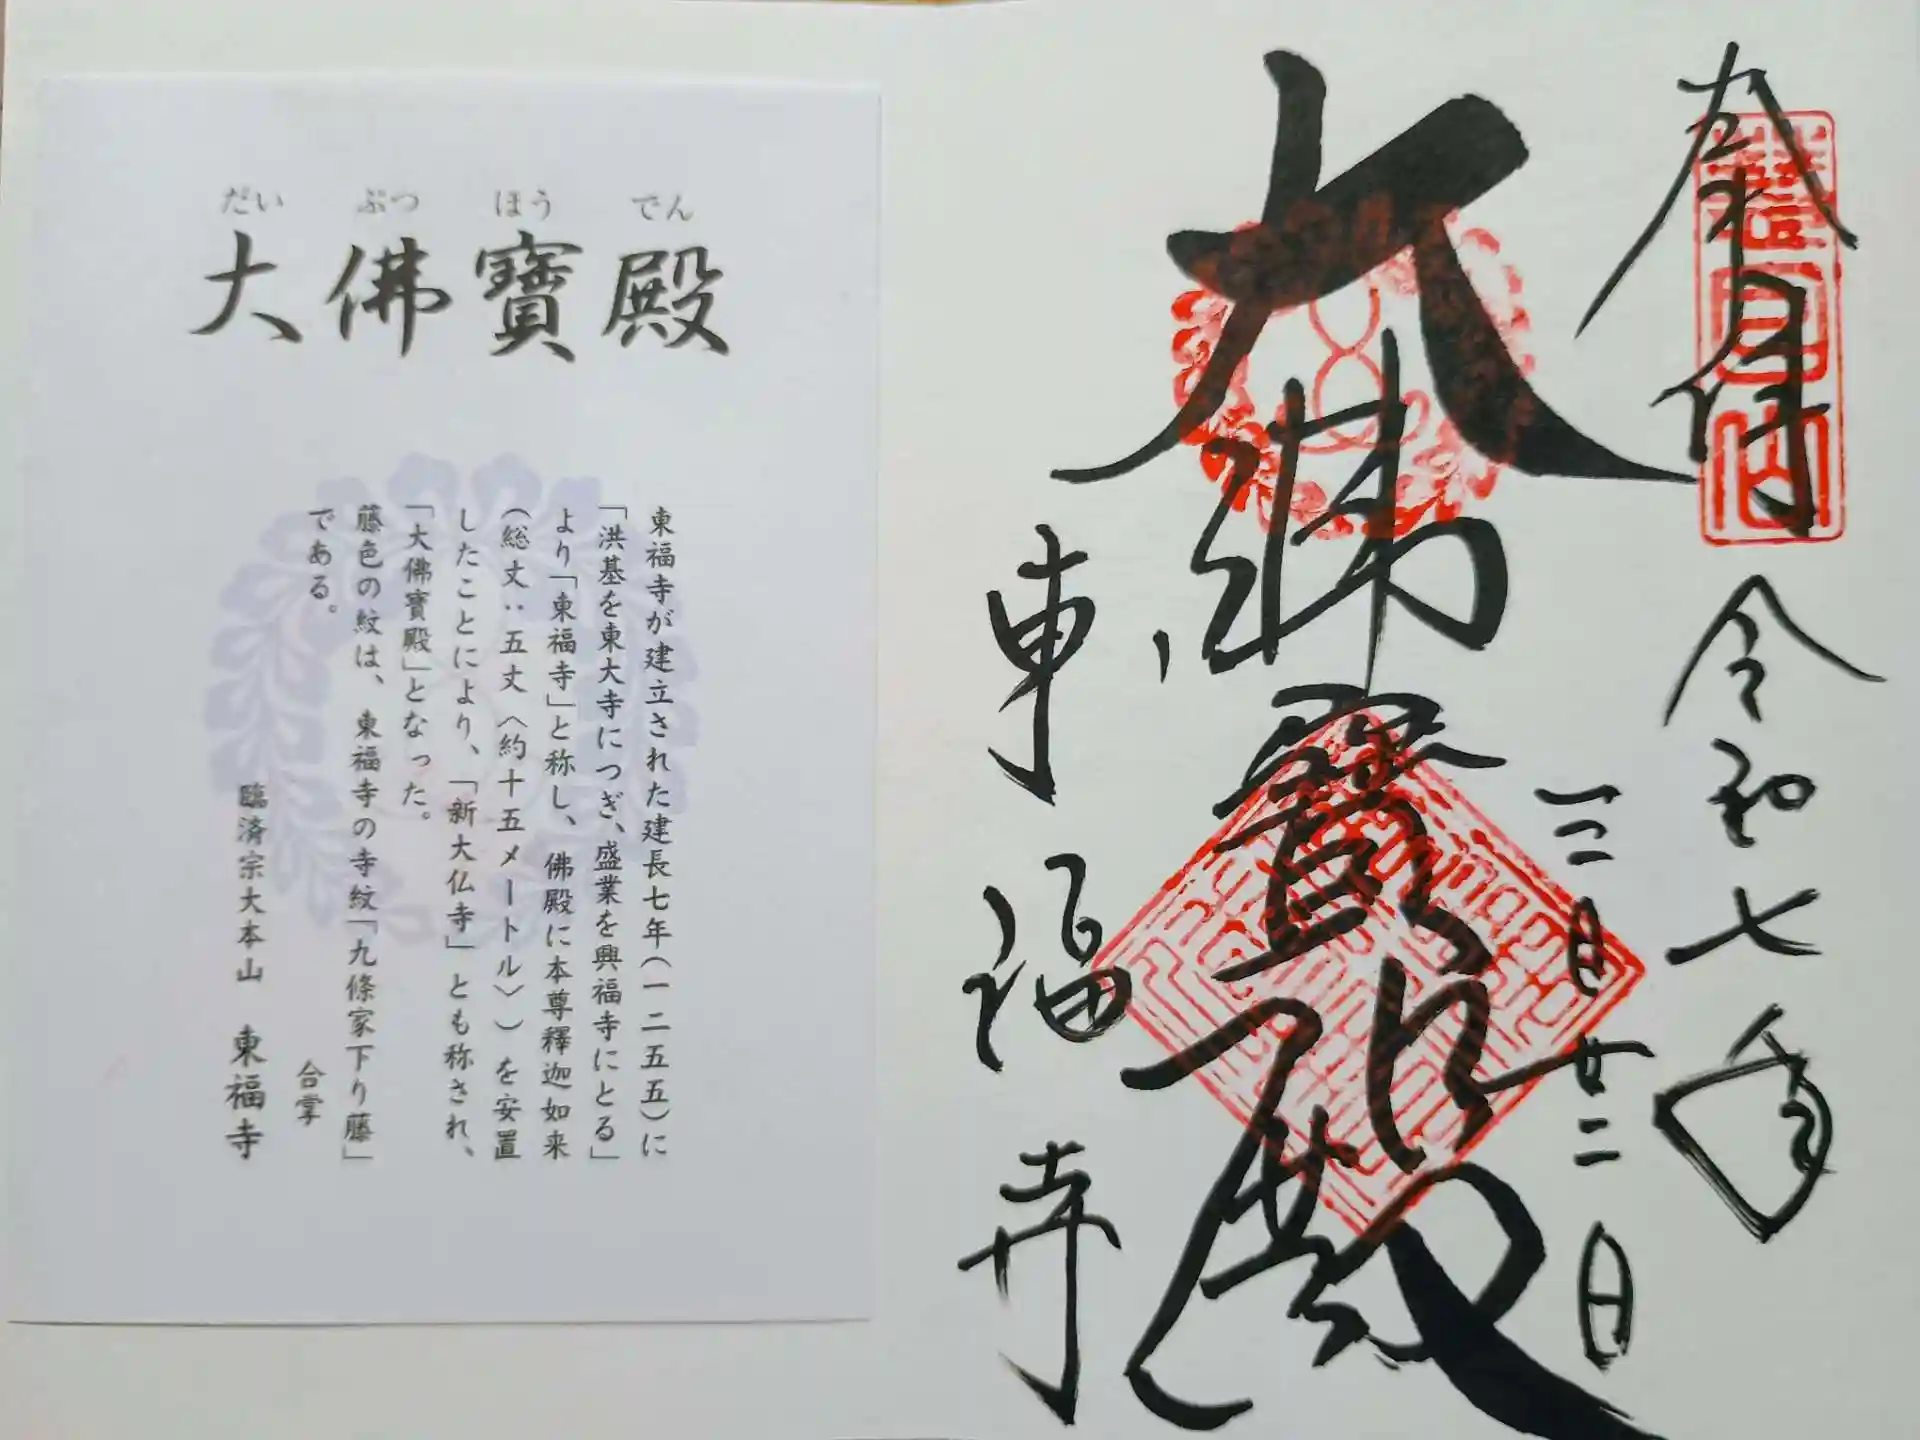 奉拝
令和七年
三月廿二日
大佛寶殿
東福寺
だい ぶつ ほう でん
大佛寶殿
東福寺が建立された建長七年(一二五五)に
「洪基を東大寺につぎ、盛業を興福寺にとる」
より「東福寺」と称し、佛殿に本尊釋迦如来
(総丈:五丈〈約十五メートル〉)を安置
したことにより、「新大仏寺」とも称され、
「大佛寶殿」となった。
藤色の紋は、東福寺の寺紋「九條家下り藤」
である。
合掌
臨済宗大本山 東福寺